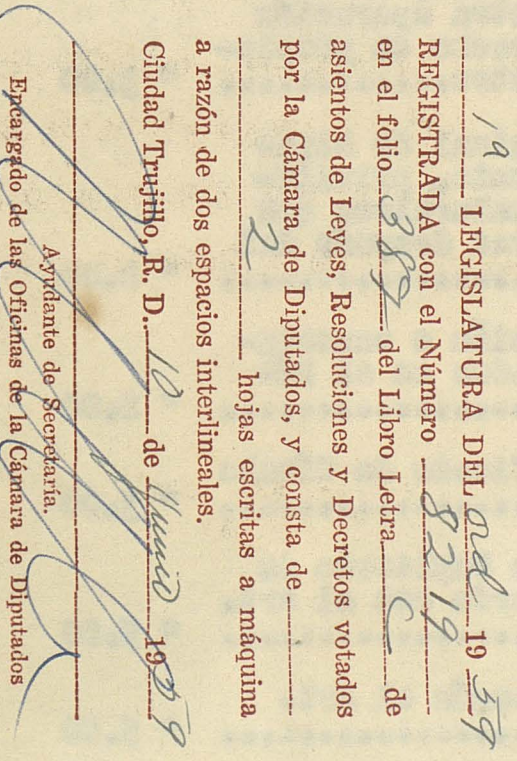 1a LEGISLATURA DEL ord 19 59
REGISTRADA con el Número 8219
en el folio 384 del Libro Letra C de
asientos de Leyes, Resoluciones y Decretos votados
por la Cámara de Diputados, y consta de
2 hojas escritas a máquina
a razón de dos espacios interlineales.
Ciudad Trujillo, R. D. 10 de Junio 1959
Ayudante de Secretaría.
Encargado de las Oficinas de la Cámara de Diputados